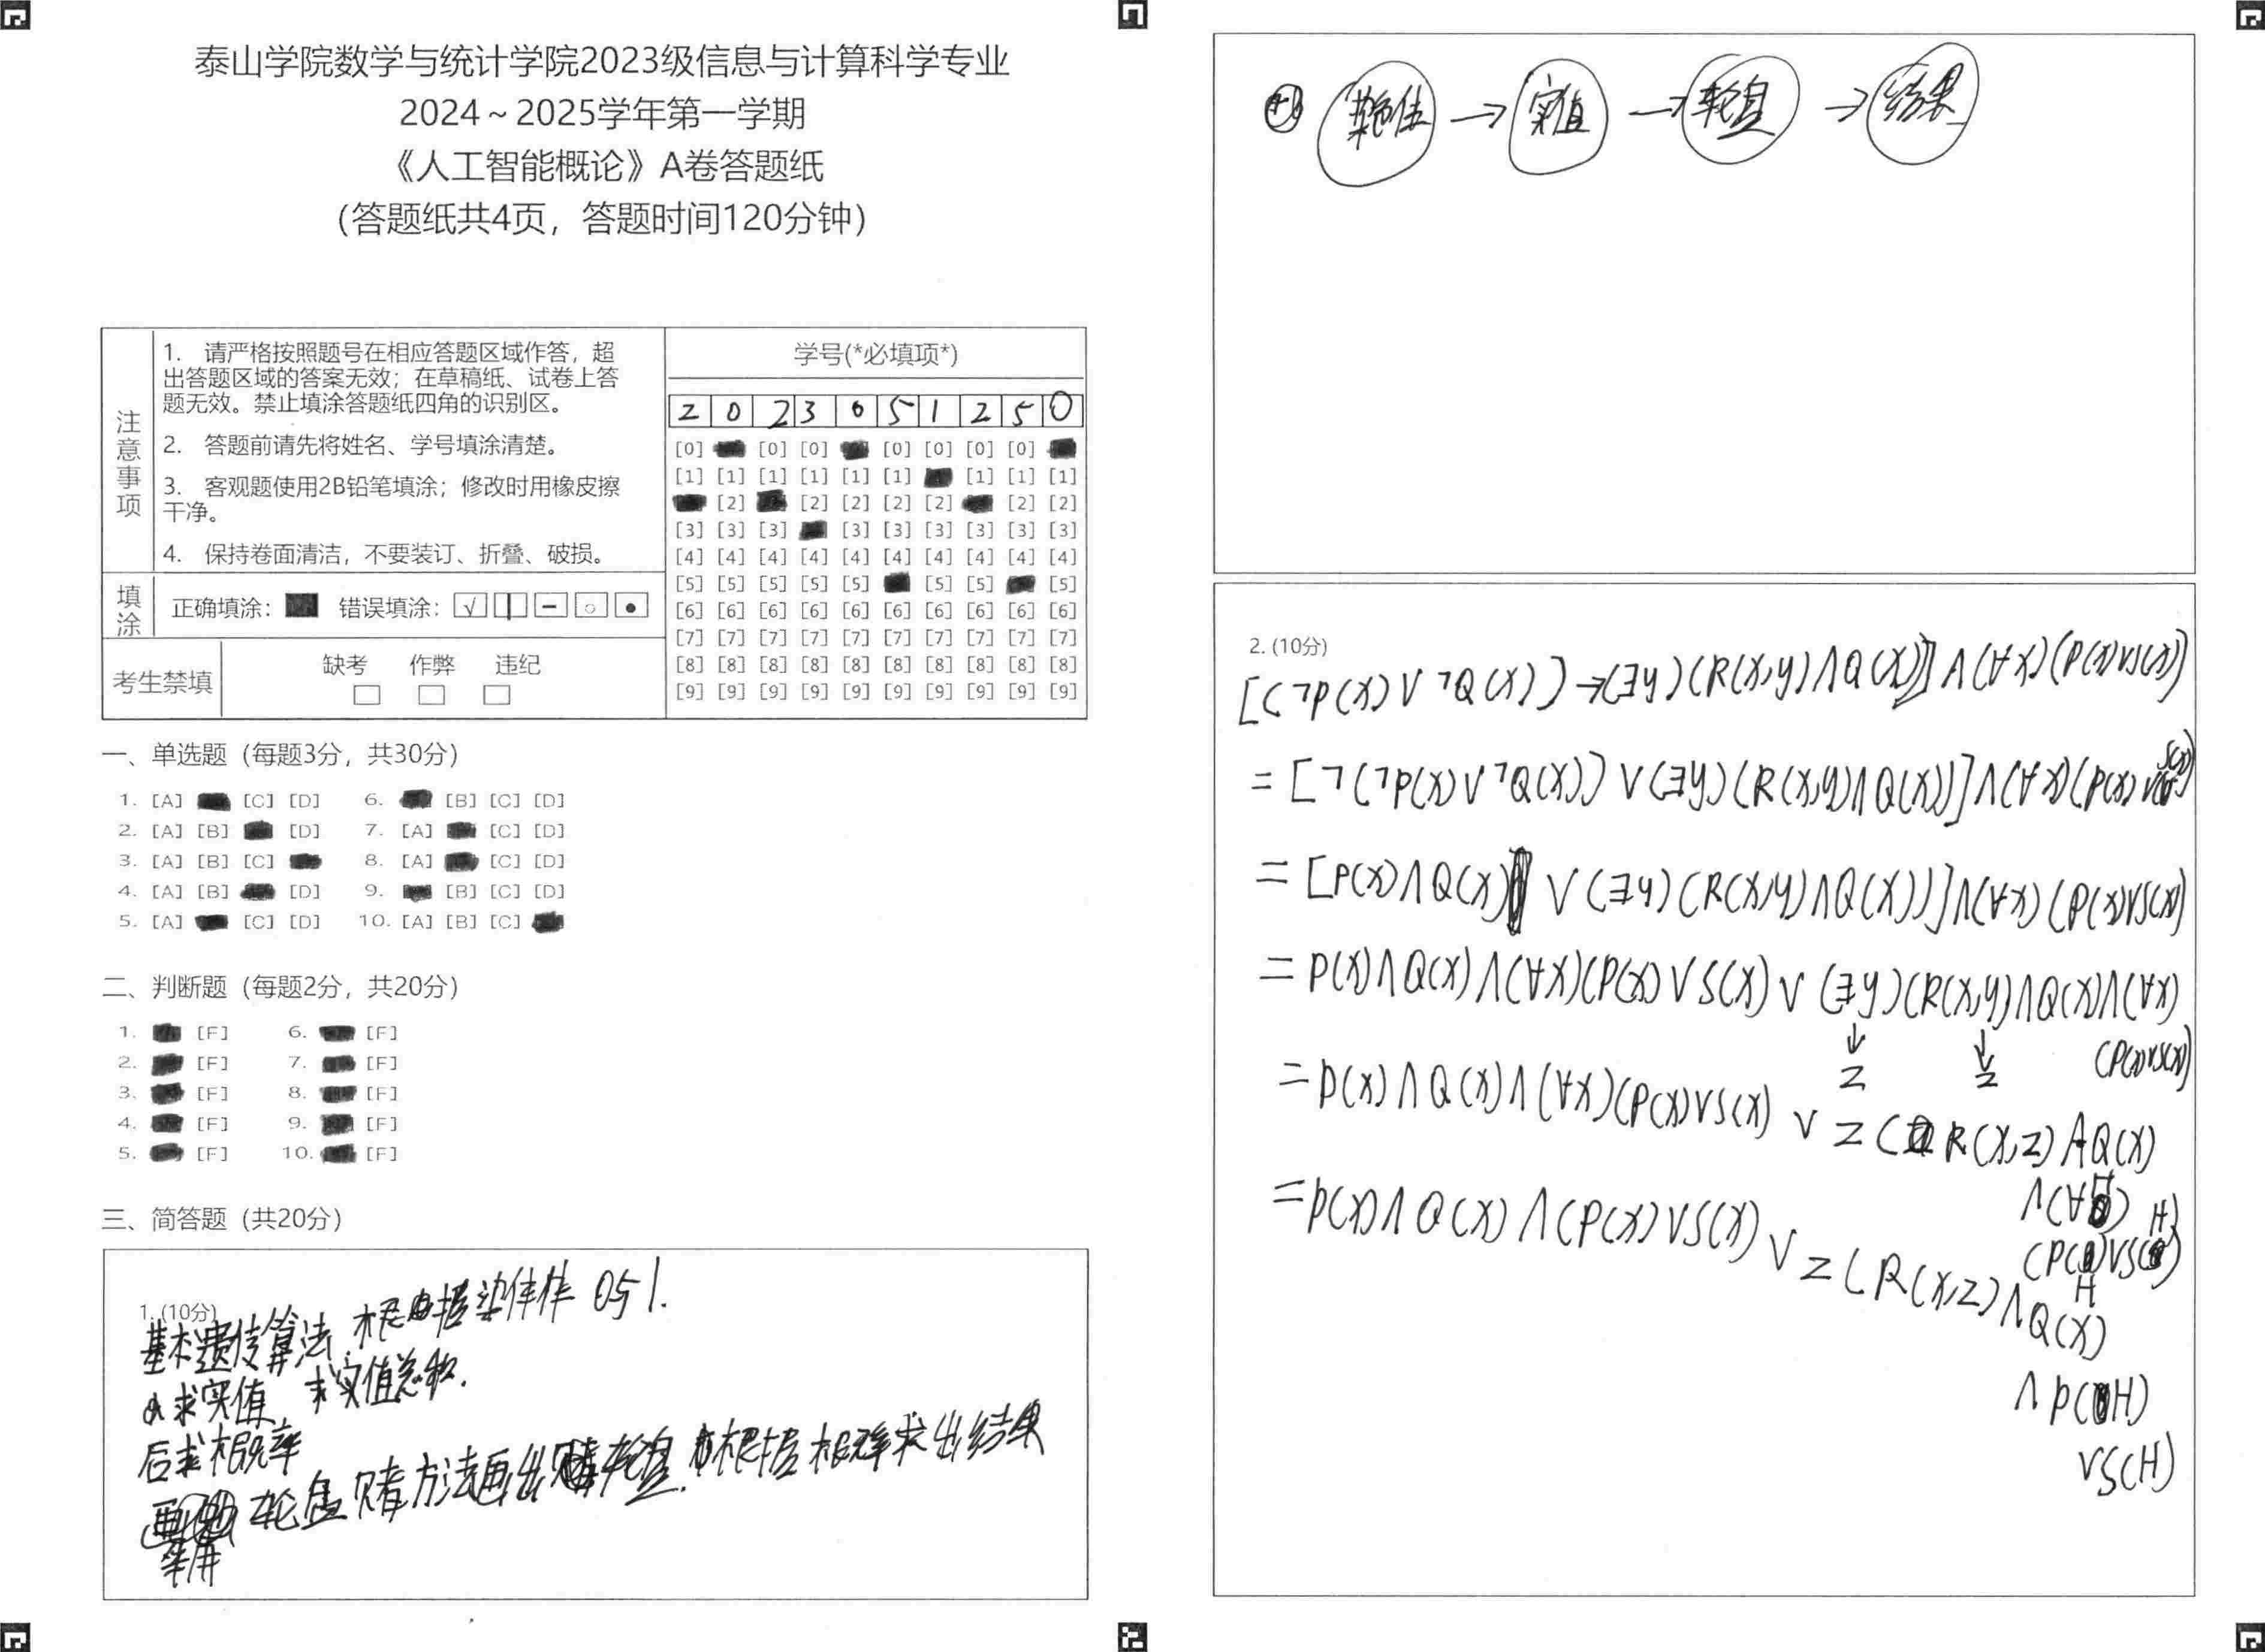 泰山学院数学与统计学院2023级信息与计算科学专业
2024～2025学年第一学期
《人工智能概论》A卷答题纸
（答题纸共4页，答题时间120分钟）
注意事项
1. 请严格按照题号在相应答题区域作答，超
出答题区域的答案无效；在草稿纸、试卷上答
题无效。禁止填涂答题纸四角的识别区。
2. 答题前请先将姓名、学号填涂清楚。
3. 客观题使用2B铅笔填涂；修改时用橡皮擦
干净。
4. 保持卷面清洁，不要装订、折叠、破损。
填涂
正确填涂： 错误填涂：
考生禁填
缺考 作弊 违纪
学号(*必填项*)
2 0 2 3 0 5 1 2 5 0
[0] [0] [0] [0] [0] [0] [0]
[1] [1] [1] [1] [1] [1] [1] [1] [1]
[2] [2] [2] [2] [2] [2] [2]
[3] [3] [3] [3] [3] [3] [3] [3] [3]
[4] [4] [4] [4] [4] [4] [4] [4] [4] [4]
[5] [5] [5] [5] [5] [5] [5] [5]
[6] [6] [6] [6] [6] [6] [6] [6] [6] [6]
[7] [7] [7] [7] [7] [7] [7] [7] [7] [7]
[8] [8] [8] [8] [8] [8] [8] [8] [8] [8]
[9] [9] [9] [9] [9] [9] [9] [9] [9] [9]
一、单选题（每题3分，共30分）
1. [A] [C] [D] 6. [B] [C] [D]
2. [A] [B] [D] 7. [A] [C] [D]
3. [A] [B] [C] 8. [A] [C] [D]
4. [A] [B] [D] 9. [B] [C] [D]
5. [A] [C] [D] 10. [A] [B] [C]
二、判断题（每题2分，共20分）
1. [F] 6. [F]
2. [F] 7. [F]
3. [F] 8. [F]
4. [F] 9. [F]
5. [F] 10. [F]
三、简答题（共20分）
1. (10分)
基本遗传算法 根据染体 0与1.
求实值 求实值总和.
后求概率
轮盘赌方法画出轮盘. 根据概率求出结果
→ 实值 → 轮盘 → 结果
2. (10分)
[(¬P(X)∨¬Q(X))→(∃y)(R(X,y)∧Q(X))]∧(∀X)(P(X)∨S(X))
=[¬(¬P(X)∨¬Q(X))∨(∃y)(R(X,y)∧Q(X))]∧(∀X)(P(X)∨S(X))
=[P(X)∧Q(X)∨(∃y)(R(X,y)∧Q(X))]∧(∀X)(P(X)∨S(X))
=P(X)∧Q(X)∧(∀X)(P(X)∨S(X)∨(∃y)(R(X,y)∧Q(X)∧(∀X)
(P(X)∨S(X))
↓ ↓
Z Z
=P(X)∧Q(X)∧(∀X)(P(X)∨S(X)∨Z(R(X,Z)∧Q(X)
∧(∀H)
(P(H)∨S(H)
=P(X)∧Q(X)∧(P(X)∨S(X)∨Z(R(X,Z)∧Q(X)
∧P(H)
∨S(H)